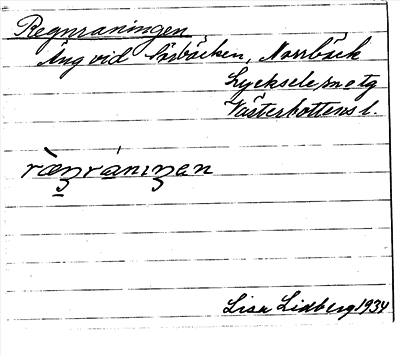 Regnraningen
Äng vid Norrbäcken, Norrbäck
Lycksele sn o tg
Västerbottens l.
ræŋrániŋen
Lisa Lidberg 1934